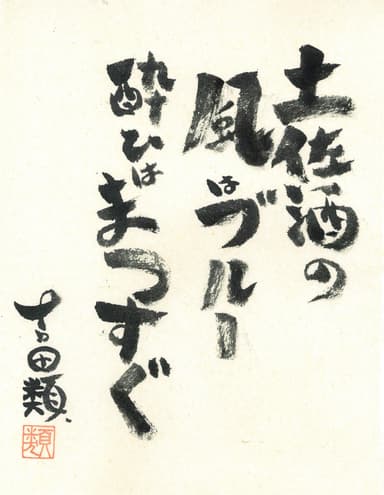 土佐酒の
風はブルー
酔ひはまつすぐ
吉田類
類